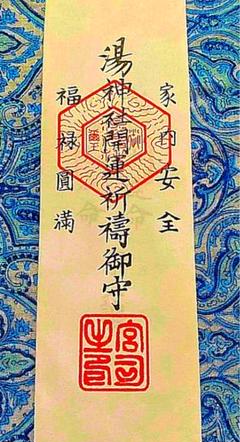 家内安全
湯神社開運祈禱御守
福禄圓満
宮司之印